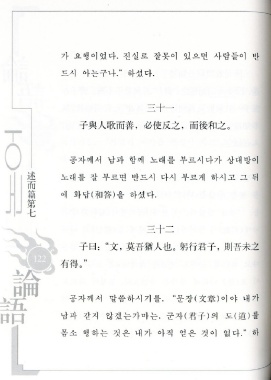 가 요행이었다. 진실로 잘못이 있으면 사람들이 반
드시 아는구나.” 하셨다.
三十一
子與人歌而善，必使反之，而後和之。
공자께서 남과 함께 노래를 부르시다가 상대방이
노래를 잘 부르면 반드시 다시 부르게 하시고 그 뒤
에 화답(和答)을 하셨다.
三十二
子曰：“文，莫吾猶人也。躬行君子，則吾未之
有得。”
공자께서 말씀하시기를, “문장(文章)이야 내가
남과 같지 않겠는가마는, 군자(君子)의 도(道)를
몸소 행하는 것은 내가 아직 얻은 것이 없다.” 하
述而篇第七
122
論語